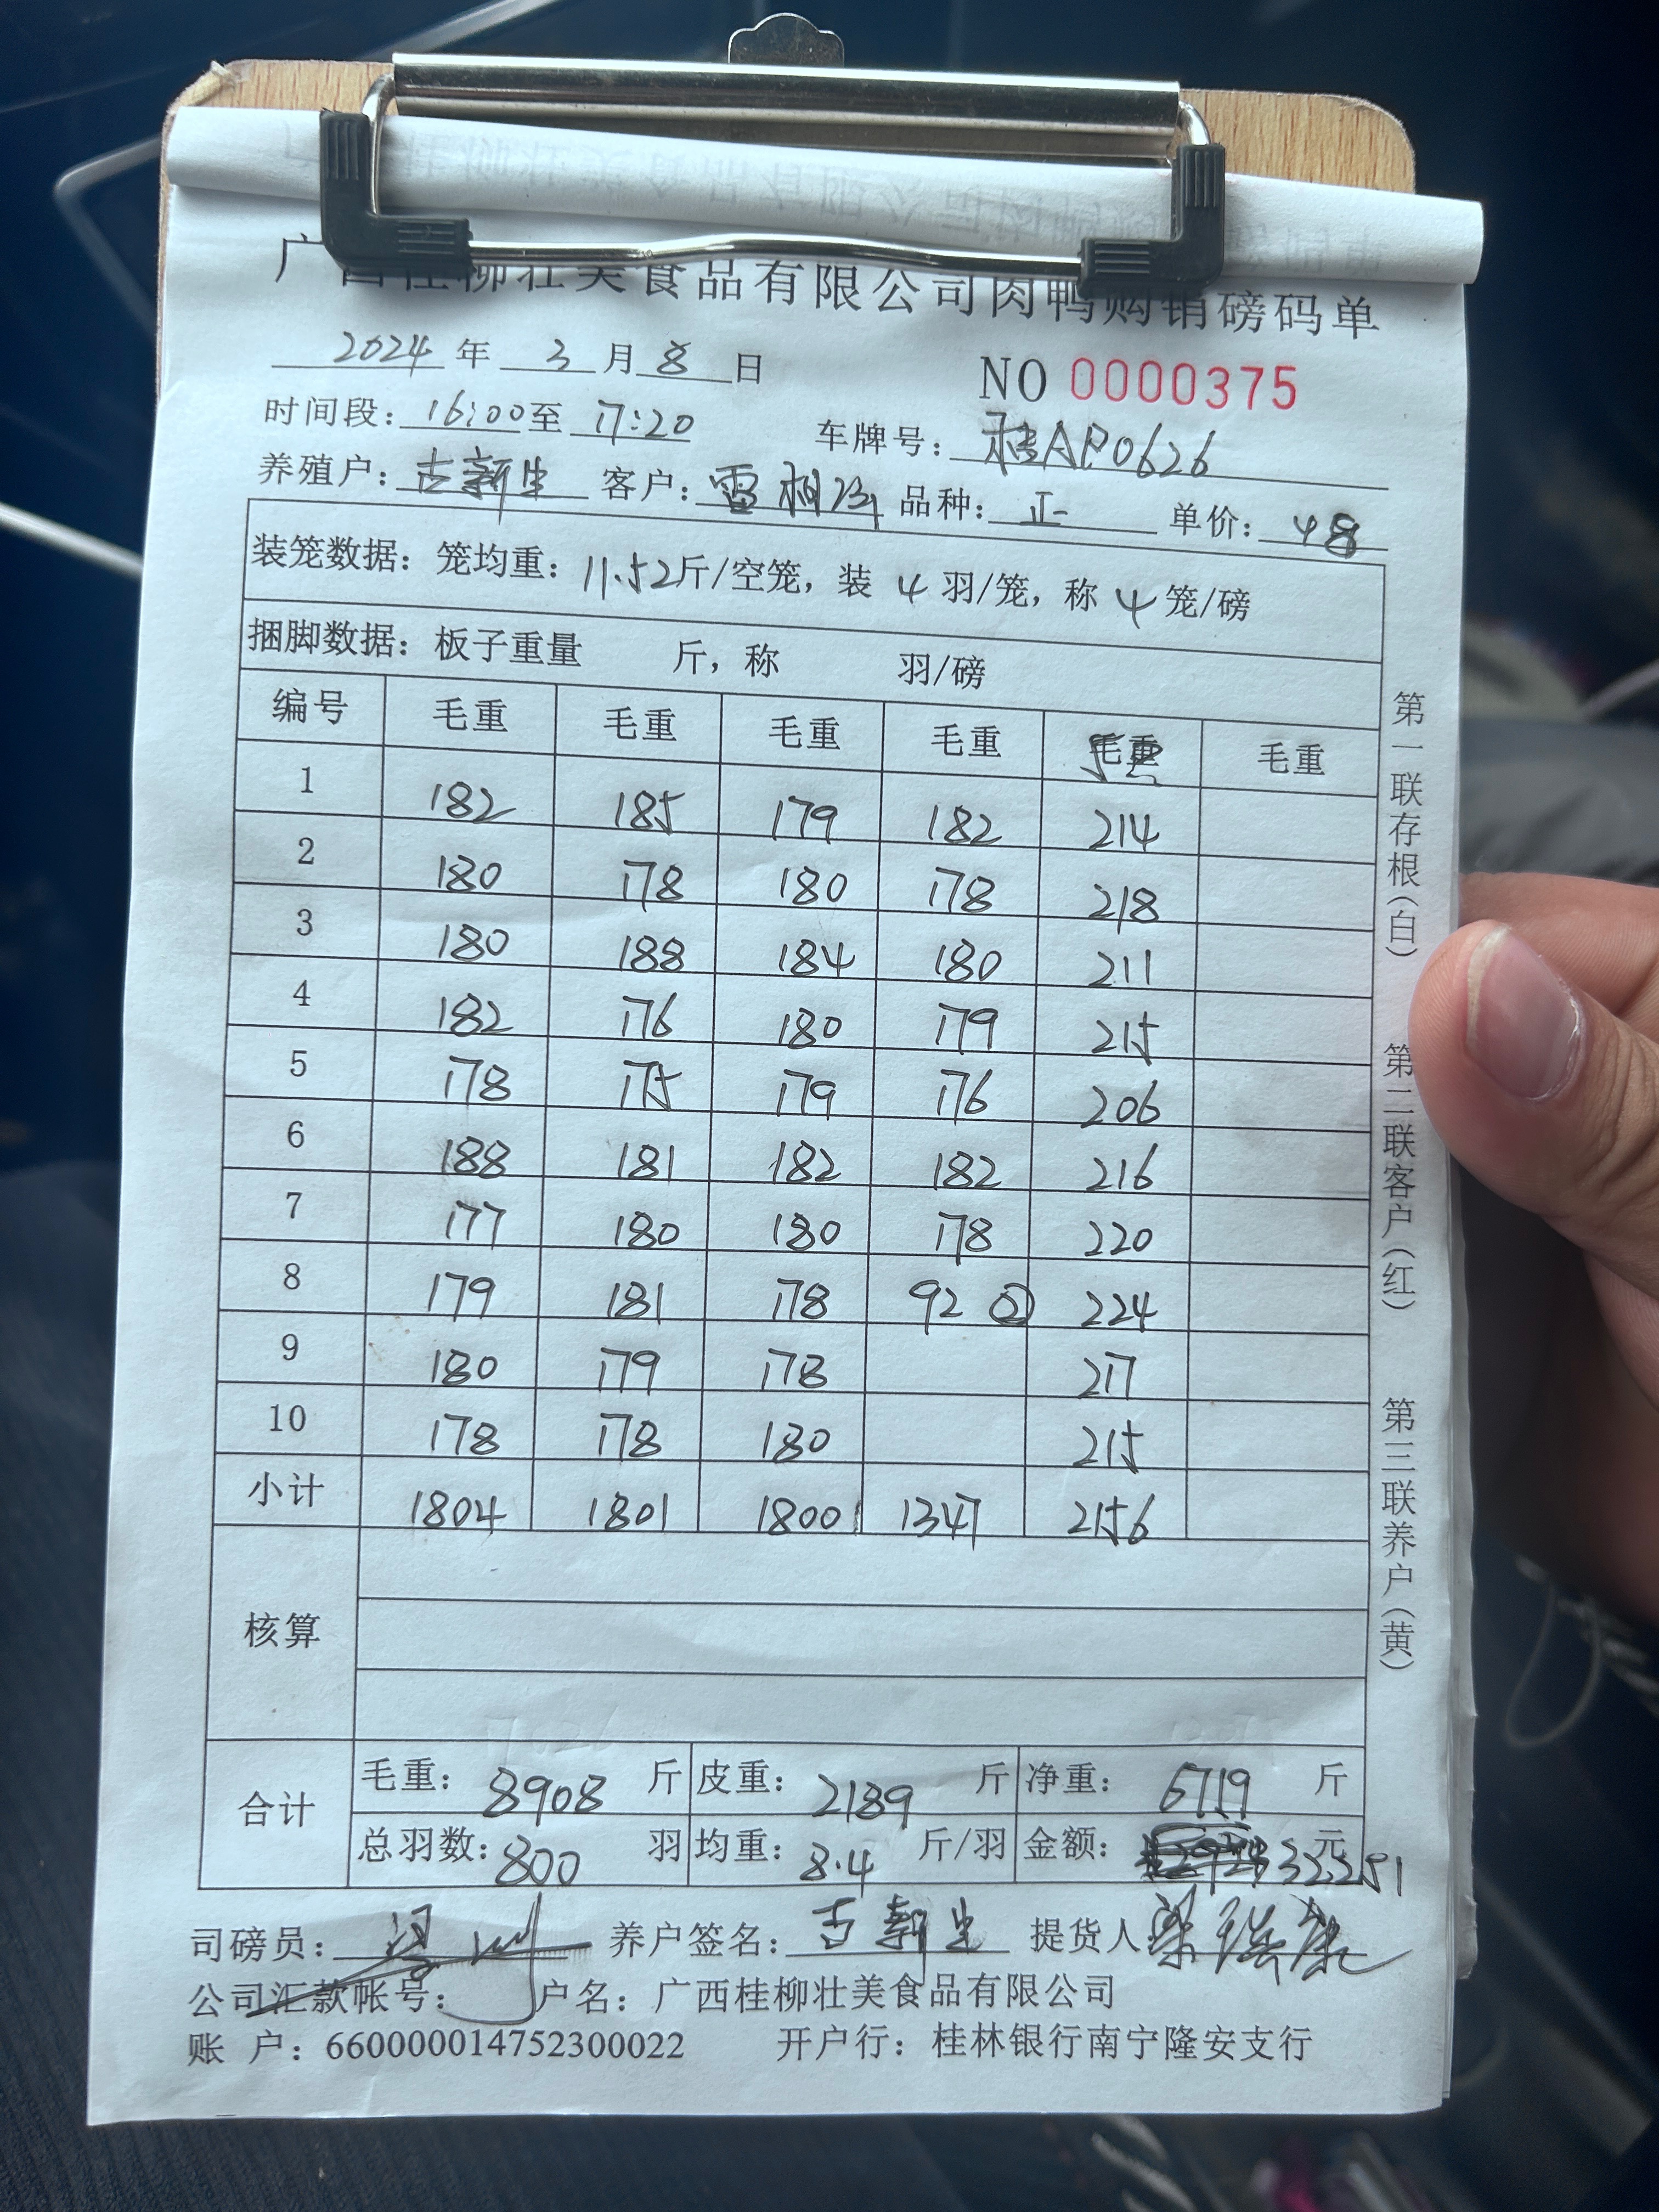 广西桂柳壮美食品有限公司肉鸭购销磅码单
2024 年 3 月 8 日 NO 0000375
时间段: 16:00 至 17:20 车牌号: 桂AP0626
养殖户: 古新生 客户: 雷相 品种: 正 单价: 48
装笼数据: 笼均重: 11.52斤/空笼, 装 4 羽/笼, 称 4 笼/磅
捆脚数据: 板子重量 斤, 称 羽/磅
编号 毛重 毛重 毛重 毛重 毛重 毛重
1 182 185 179 182 214
2 180 178 180 178 218
3 180 188 184 180 211
4 182 176 180 179 215
5 178 175 179 176 206
6 188 181 182 182 216
7 177 180 180 178 220
8 179 181 178 92 ② 224
9 180 179 178 217
10 178 178 180 215
小计 1804 1801 1800 1347 2156
核算
合计 毛重: 8908 斤 皮重: 2189 斤 净重: 6719 斤
总羽数: 800 羽 均重: 8.4 斤/羽 金额: 32251 元
司磅员: 养户签名: 古新生 提货人 梁
公司汇款帐号: 户名: 广西桂柳壮美食品有限公司
账 户: 660000014752300022 开户行: 桂林银行南宁隆安支行
第一联存根(白) 第二联客户(红) 第三联养户(黄)